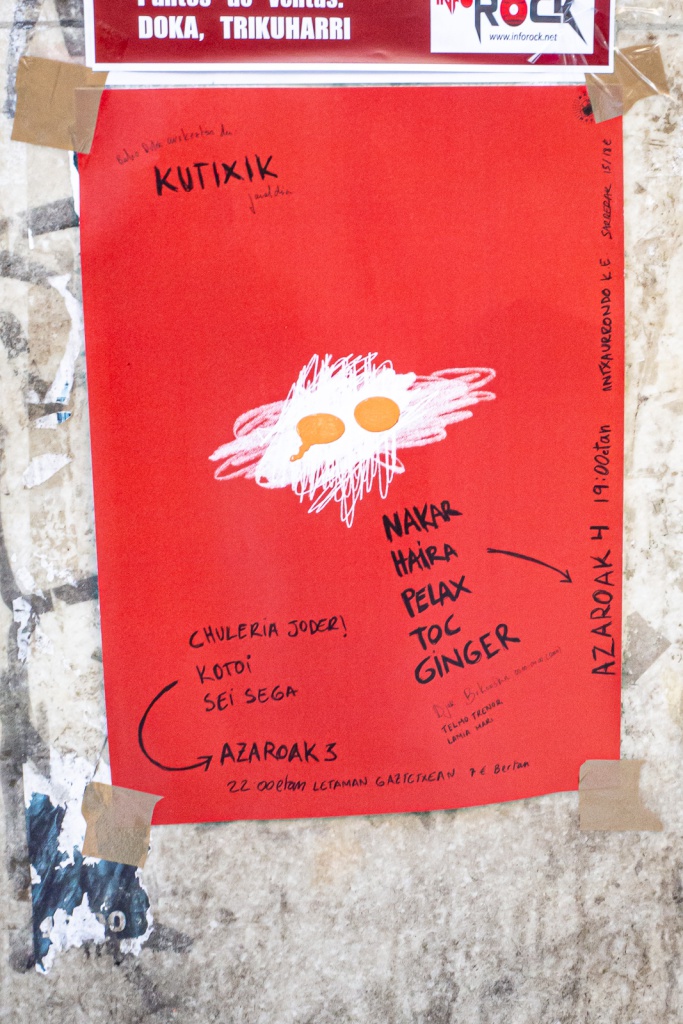 Puntos de ventas:
DOKA, TRIKUHARRI
INFO
ROCK
www.inforock.net
KUTIXIK
jaialdia
NAKAR
HAIRA
PELAX
TOC
GINGER
Djs
TELMO TRENOR
LAMIA MARI
CHULERIA JODER!
KOTOI
SEI SEGA
AZAROAK 3
22 00etan LETAMAN GAZTETXEAN 7 € Bertan
AZAROAK 4 19:00etan INTXAURRONDO K E SARRERAK 15/18 €